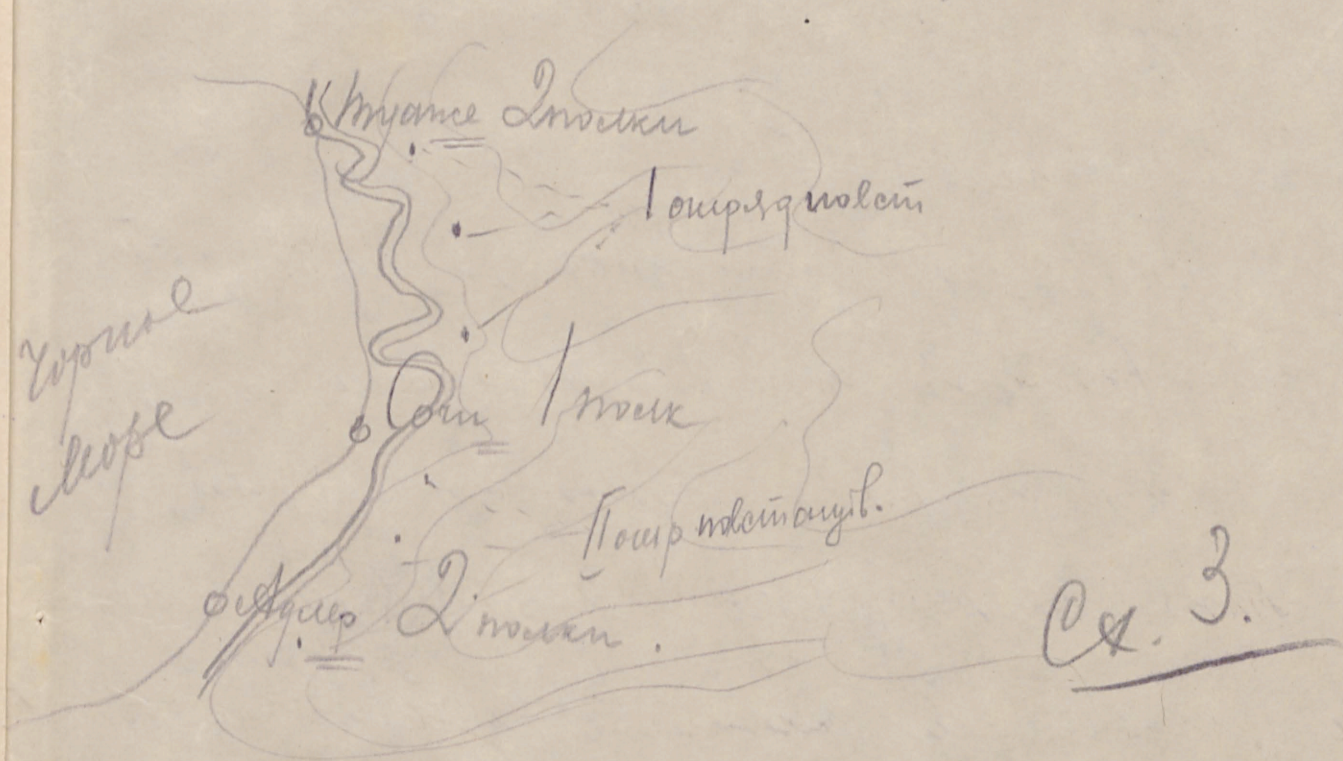 Ктуапсе 2 полки
I отряд повст
Чорное
море
Сочи 1 полк
II отр повстанців.
Адлер 2 полки.
Сх. 3.